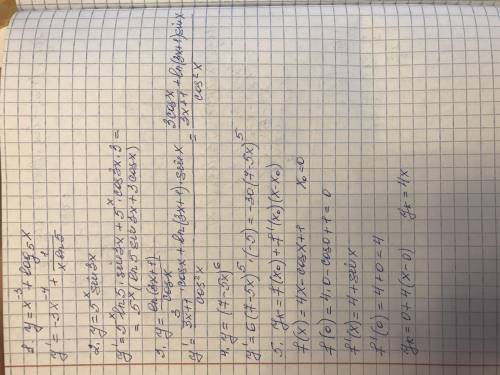 1. y = x⁻³ + log₅x
y' = -3x⁻⁴ + 1/(x ln5)
2. y = 5ˣ sin3x
y' = 5ˣ ln5 · sin3x + 5ˣ · cos3x · 3 =
= 5ˣ (ln5 sin3x + 3cosx)
3. y = ln(3x+1)/cosx
y' = (3/(3x+1) · cosx + ln(3x+1) · sinx)/cos²x = (3cosx/(3x+1) + ln(3x+1) sinx)/cos²x
4. y = (7-5x)⁶
y' = 6(7-5x)⁵ · (-5) = -30(7-5x)⁵
5. yк = f(x₀) + f'(x₀)(x-x₀)
f(x) = 4x - cosx + 1 x₀ = 0
f(0) = 4·0 - cos0 + 1 = 0
f'(x) = 4 + sinx
f'(0) = 4 + 0 = 4
yк = 0 + 4(x-0) yк = 4x